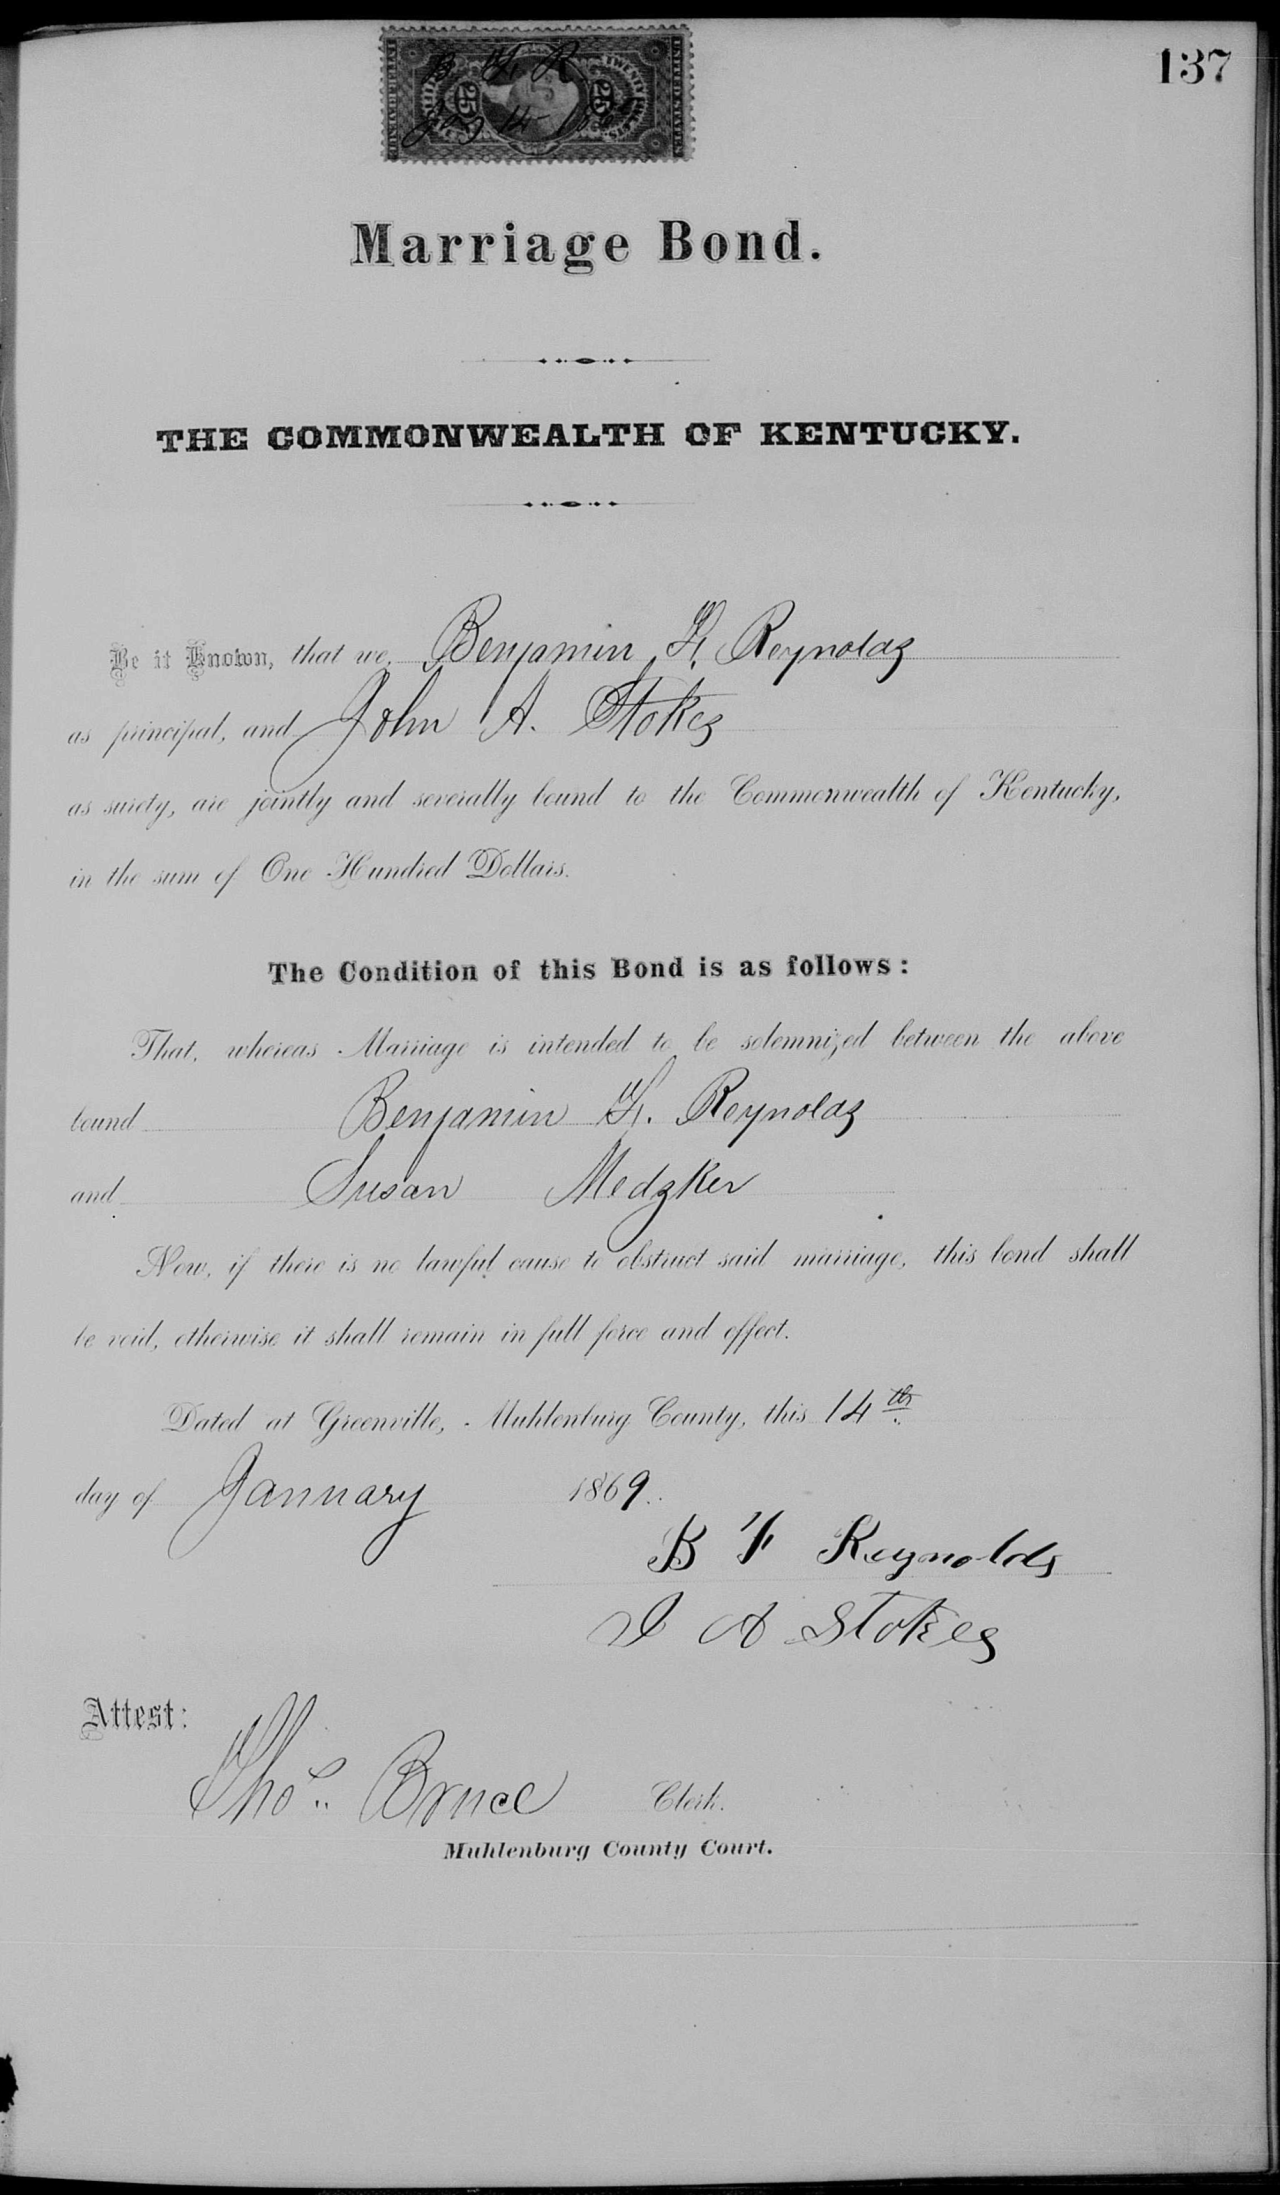 137
UNITED STATES
25
25
B. F. R
Jan 14 1869
Marriage Bond.
THE COMMONWEALTH OF KENTUCKY.
Be it Known, that we, Benjamin F. Reynolds
as principal, and John A. Stokes
as surety, are jointly and severally bound to the Commonwealth of Kentucky,
in the sum of One Hundred Dollars.
The Condition of this Bond is as follows:
That, whereas Marriage is intended to be solemnized between the above
bound Benjamin F. Reynolds
and Susan Medzker
Now, if there is no lawful cause to obstruct said marriage, this bond shall
be void, otherwise it shall remain in full force and effect.
Dated at Greenville, Muhlenburg County, this 14th
day of January 1869.
B F Reynolds
J A Stokes
Attest:
Thos. Bruce Clerk.
Muhlenburg County Court.